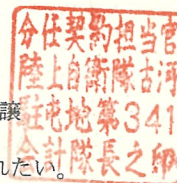 分任契約担当官
陸上自衛隊古河
譲
駐屯地第341
会計隊長之印
れたい。